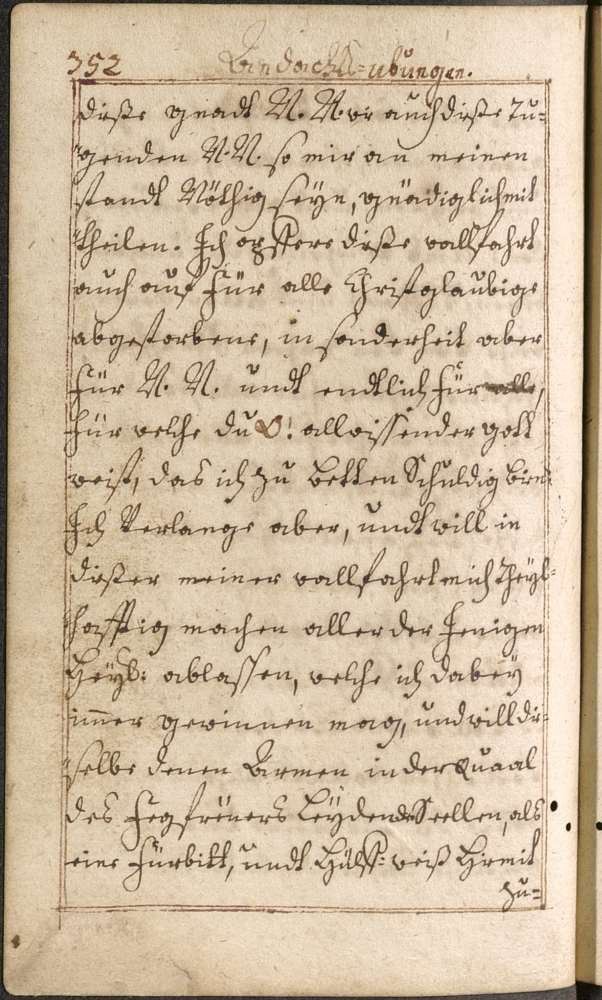 352 Andachts=ubungen.
diße gnadt N. N. vor auch diße Tu=
genden N. N. so mir an meinen
standt Nöthig seyn, gnädiglich mit
theilen. Ich opffere diße wallfahrt
auch auf für alle Christglaubige
abgestorbene, in sonderheit aber
für N. N. undt endtlich für alle,
für welche du O! allwissender gott
weist, das ich zu betten Schuldig bin:
Ich Verlange aber, undt will in
dißer meiner wallfahrt mich theyl=
hafftig machen aller der Jenigen
Heyl: ablassen, welche ich dabey
immer gewinnen mag, und will die=
selbe denen Armen in der Quaal
des fegfeüers leydende Seellen, als
eine fürbitt, undt Hülff=weiß hiemit
zu=